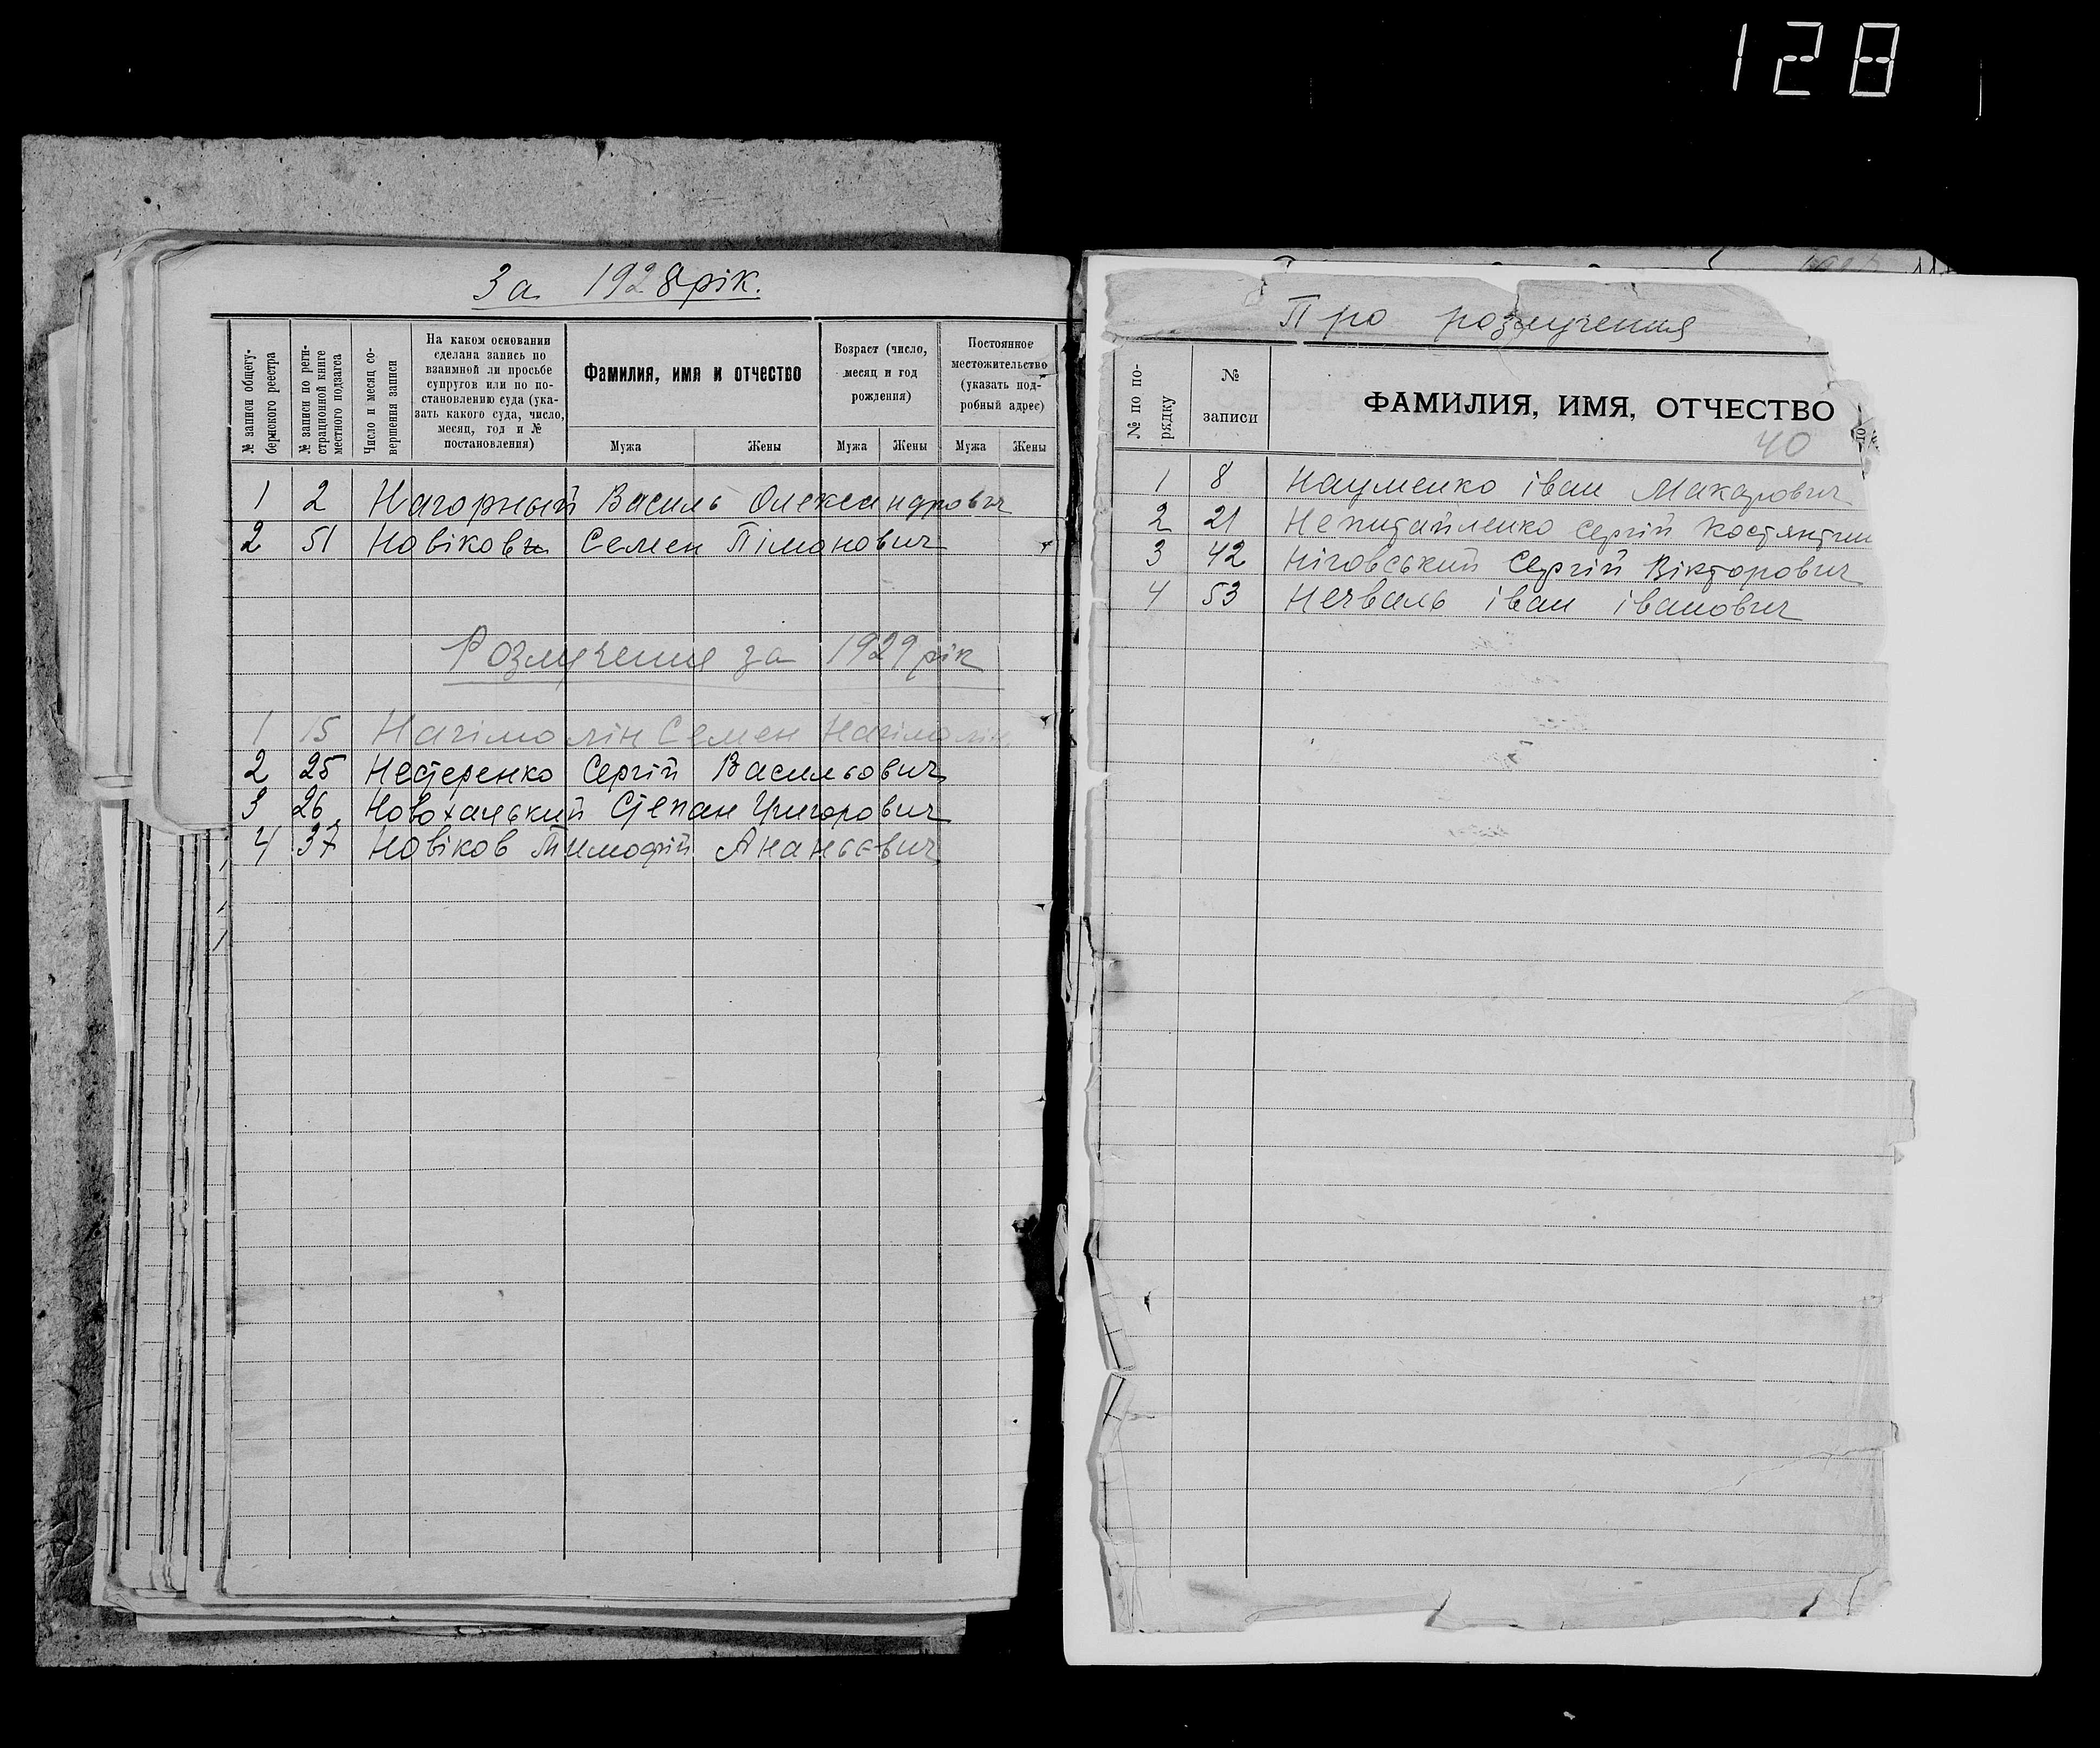 128
За 1928 рік.
№ записи общегу-
бернского реестра
№ записи по реги-
страционной книге
местного подзагса
Число и месяц со-
вершения записи
На каком основании
сделана запись по
взаимной ли просьбе
супругов или по по-
становлению суда (ука-
зать какого суда, число,
месяц, год и №
постановления)
Фамилия, имя и отчество
Мужа Жены
Возраст (число,
месяц и год
рождения)
Мужа Жены
Постоянное
местожительство
(указать под-
робный адрес)
Мужа Жены
1 2 Нагорный Василь Олександрович
2 51 Новіков Семен Пімонович
Розлучення за 1929 рік
1 15 Семен
2 25 Нестеренко Сергій Васильович
3 26 Новохацький Степан Григорович
4 37 Новіков Тимофій Ананьєвич
Про розлучення
№ по по-
рядку
№
записи
ФАМИЛИЯ, ИМЯ, ОТЧЕСТВО
40
1 8 Науменко іван Макарович
2 21 Непитайленко Сергій Костянтин
3 42 Ніговський Сергій Вікторович
4 53 Нечваль іван іванович